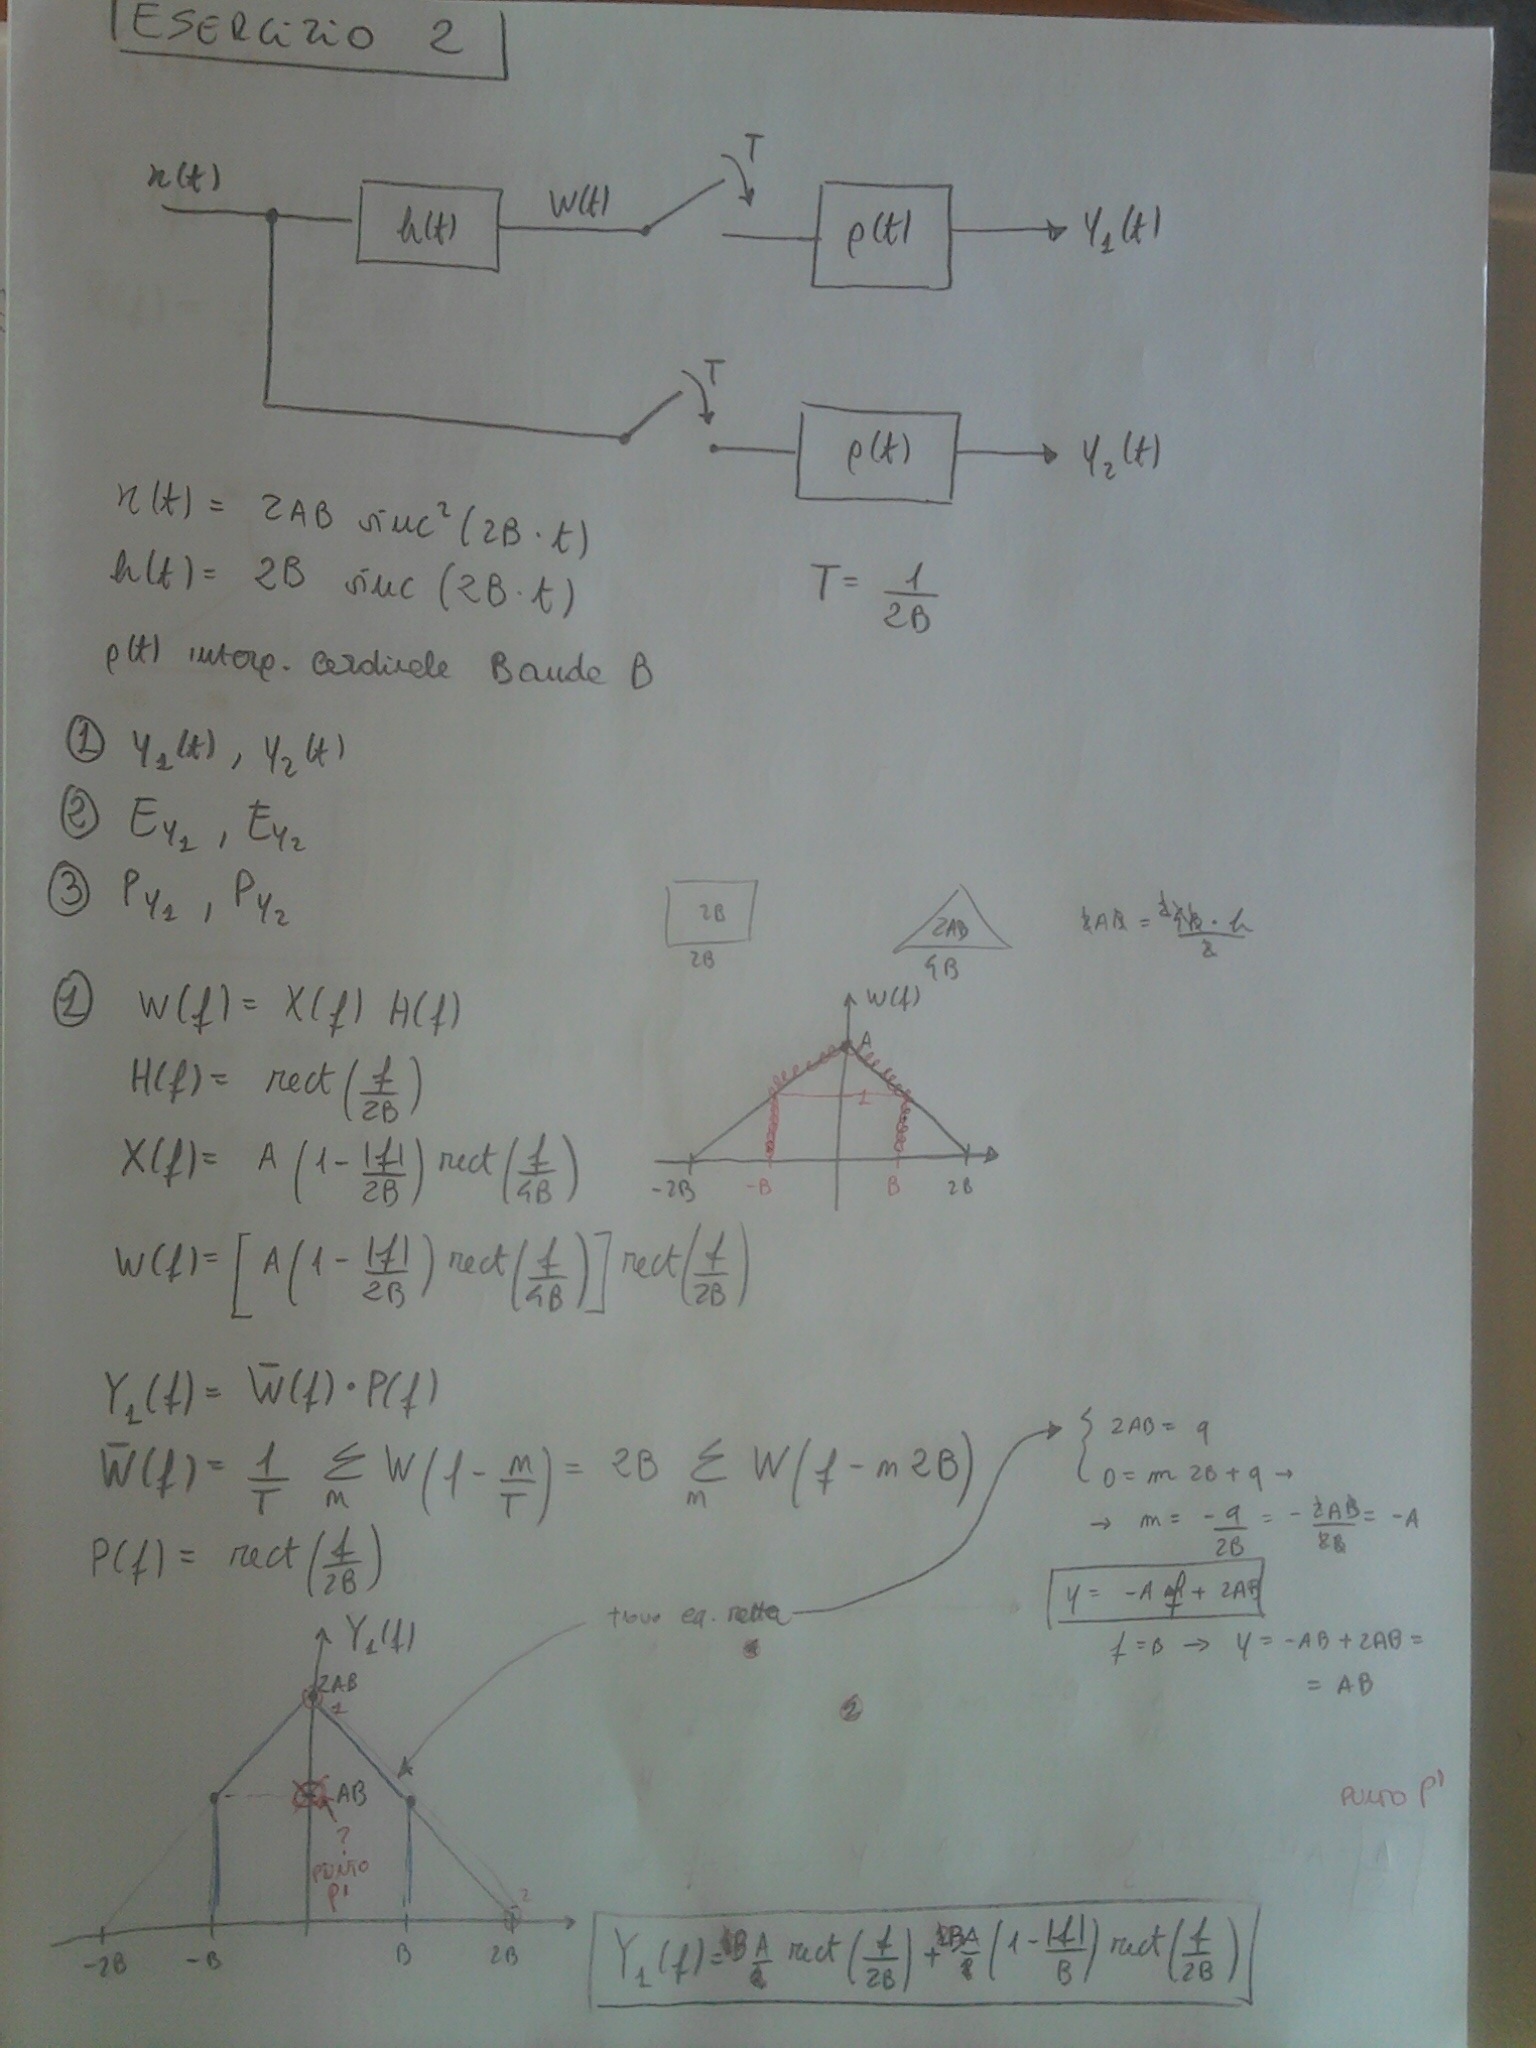 ESERCIZIO 2
x(t)
h(t)
W(t)
T
p(t)
Y₁(t)
T
p(t)
Y₂(t)
x(t) = 2AB sinc²(2B·t)
h(t) = 2B sinc (2B·t)
T = 1/2B
p(t) interp. cardinale Banda B
① Y₁(t), Y₂(t)
② E_Y₁, E_Y₂
③ P_Y₁, P_Y₂
2B
2B
2AB
4B
2AB = 4B·h/2
① W(f) = X(f) H(f)
H(f) = rect(f/2B)
X(f) = A (1 - |f|/2B) rect(f/4B)
W(f)
A
1
-2B -B B 2B
W(f) = [A(1 - |f|/2B) rect(f/4B)] rect(f/2B)
Y₁(f) = W̄(f)·P(f)
W̄(f) = 1/T Σₙ W(f - n/T) = 2B Σₙ W(f - n2B)
P(f) = rect(f/2B)
{ 2AB = q
0 = m 2B + q →
→ m = -q/2B = -2AB/2B = -A
y = -A f + 2AB
f = B → y = -AB + 2AB =
= AB
trovo eq. retta
1
2
Y₁(f)
2AB
1
AB
?
PUNTO
P1
2
-2B -B B 2B
PUNTO P1
Y₁(f) = BA rect(f/2B) + BA (1 - |f|/B) rect(f/2B)